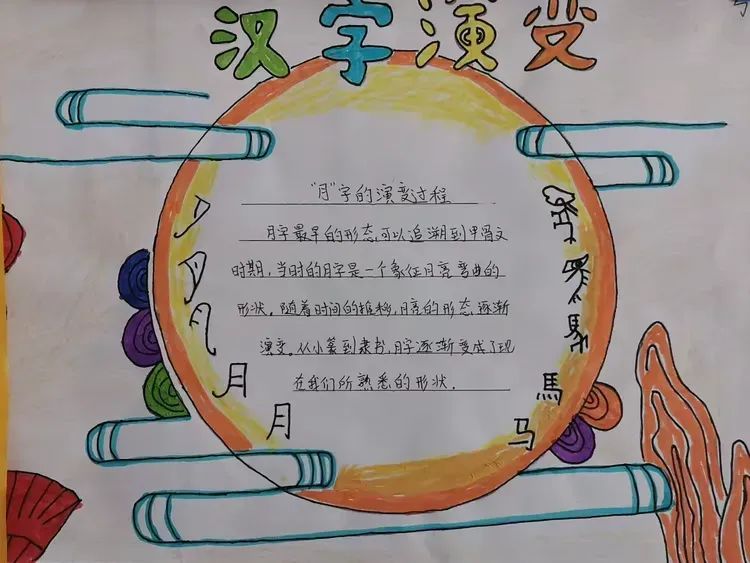 汉字演变
"月"字的演变过程
月字最早的形态可以追溯到甲骨文
时期,当时的月字是一个象征月亮弯曲的
形状。随着时间的推移,月亮的形态逐渐
演变。从小篆到隶书,月字逐渐变成了现
在我们所熟悉的形状。
月
月
馬
马